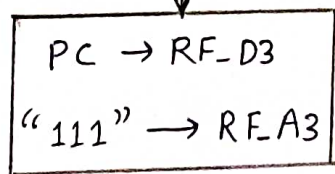 PC → RF_D3
“111” → RF_A3